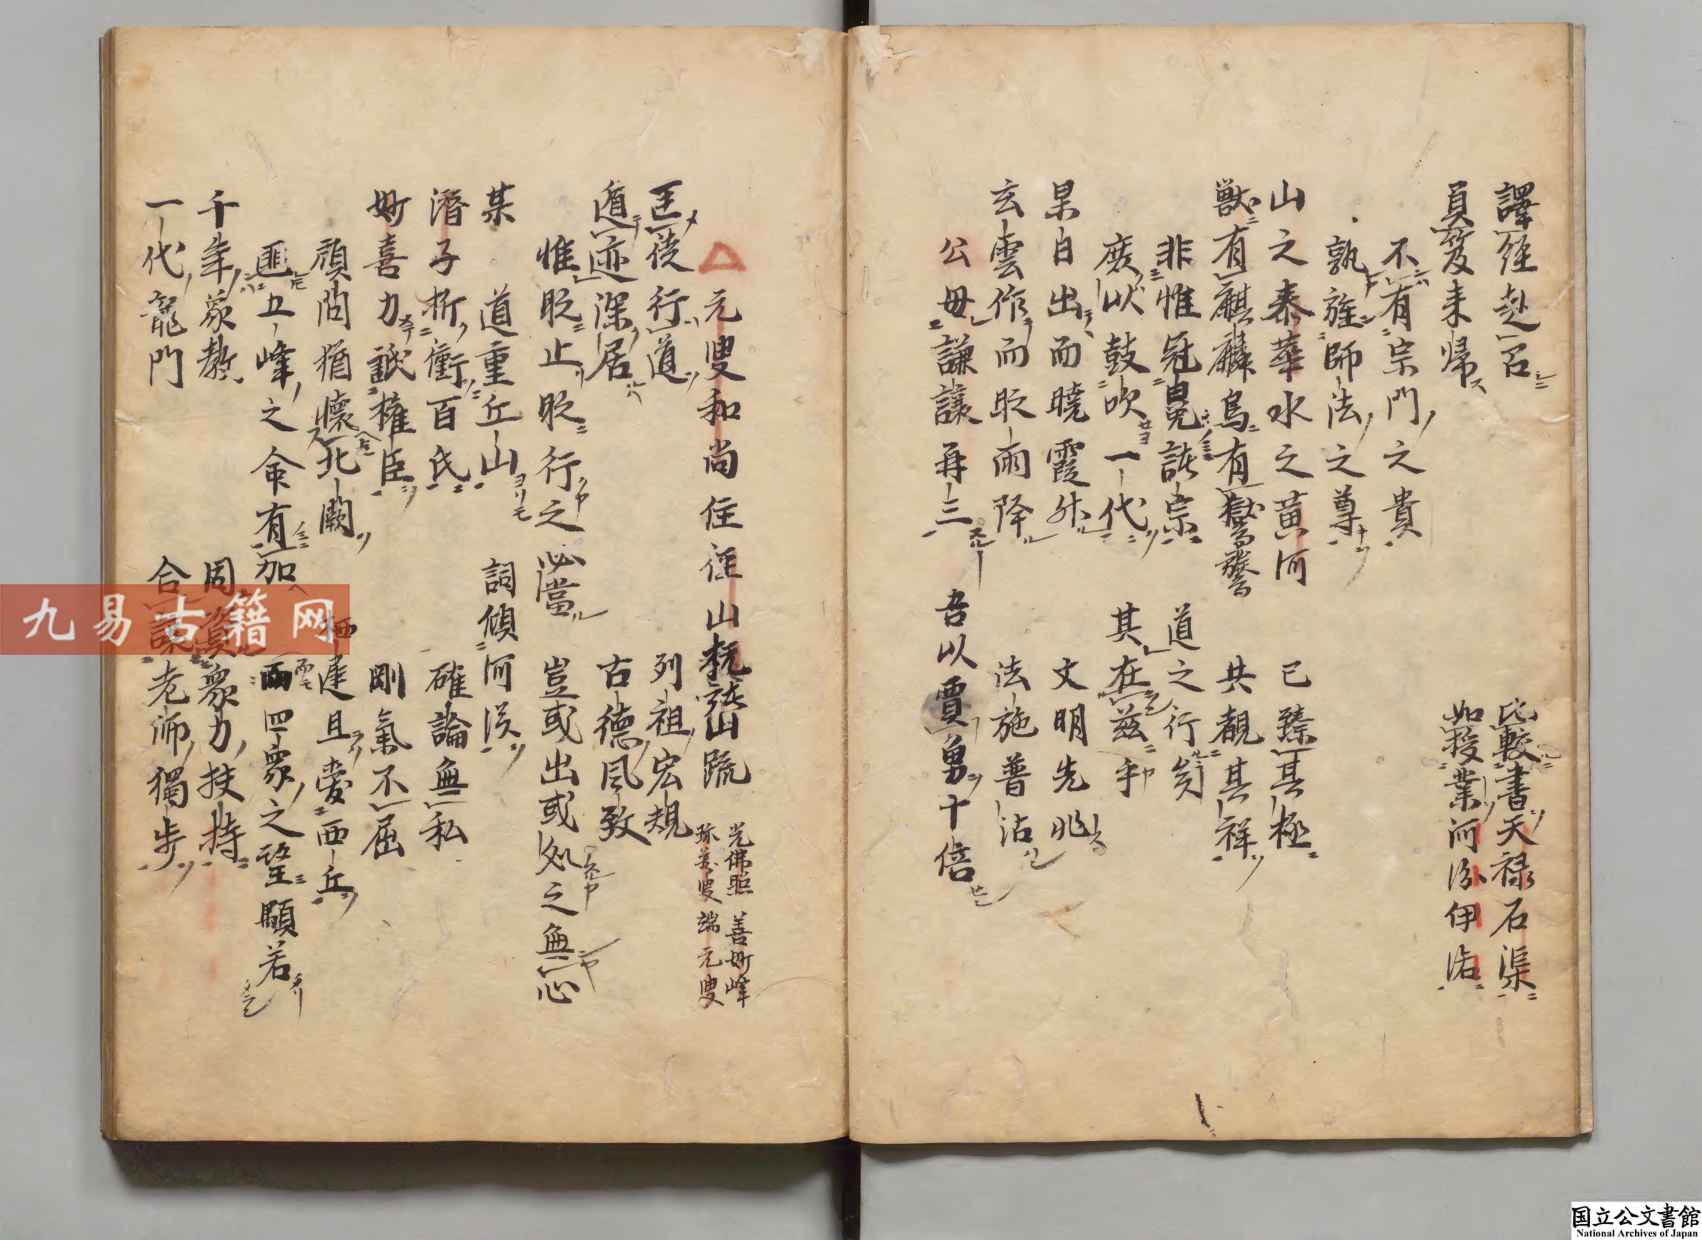 譯経赴召 比較書天禄石渠
負笈来帰 如授業河汾伊洛
不有宗門之貴
孰旌師法之尊
山之泰華水之黄河 已臻其極
獣有麒麟鳥有鸑鷟 共観其祥
非惟冠冕諸宗 道之行矣
庶以鼓吹一代 其在茲乎
杲日出而暁霞升 文明先兆
玄雲作而畋雨降 法施普沾
公毋謙譲再三 吾以賈勇十倍
元叟和尚住径山杭諸山疏 光佛照 善妙峰
珎 叟 端元叟
匡徒行道 列祖宏規
遁迹深居 古德风致
惟貶止貶行之必當 豈或出或处之無心
某 道重丘山 詞傾河漢
潛子折衝百氏 確論無私
妙喜力詆権臣 剛氣不屈
顧問猶懐北闕 栖遅且愛西丘
匪五峰之命有加 而四衆之望顒若
千年象教 固資衆力扶持
一代龍門 合讓老師獨步
九易古籍网
国立公文書館
National Archives of Japan